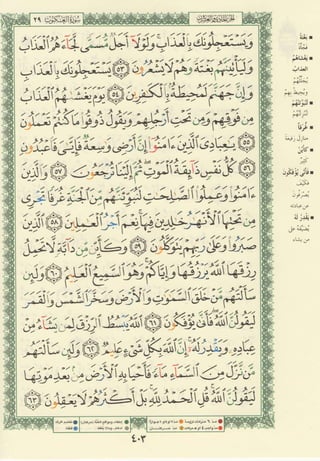 سورة العنكبوت ٢٩
وَيَسْتَعْجِلُونَكَ بِالْعَذَابِ وَلَوْلَا أَجَلٌ مُّسَمًّى لَّجَاءَهُمُ الْعَذَابُ
وَلَيَأْتِيَنَّهُم بَغْتَةً وَهُمْ لَا يَشْعُرُونَ ٥٣ يَسْتَعْجِلُونَكَ بِالْعَذَابِ
وَإِنَّ جَهَنَّمَ لَمُحِيطَةٌ بِالْكَافِرِينَ ٥٤ يَوْمَ يَغْشَاهُمُ الْعَذَابُ
مِن فَوْقِهِمْ وَمِن تَحْتِ أَرْجُلِهِمْ وَيَقُولُ ذُوقُوا مَا كُنتُمْ تَعْمَلُونَ
٥٥ يَاعِبَادِيَ الَّذِينَ ءَامَنُوا إِنَّ أَرْضِي وَاسِعَةٌ فَإِيَّايَ فَاعْبُدُونِ
٥٦ كُلُّ نَفْسٍ ذَائِقَةُ الْمَوْتِ ثُمَّ إِلَيْنَا تُرْجَعُونَ ٥٧ وَالَّذِينَ
ءَامَنُوا وَعَمِلُوا الصَّالِحَاتِ لَنُبَوِّئَنَّهُم مِّنَ الْجَنَّةِ غُرَفًا تَجْرِي
مِن تَحْتِهَا الْأَنْهَارُ خَالِدِينَ فِيهَا نِعْمَ أَجْرُ الْعَامِلِينَ ٥٨ الَّذِينَ
صَبَرُوا وَعَلَى رَبِّهِمْ يَتَوَكَّلُونَ ٥٩ وَكَأَيِّن مِّن دَابَّةٍ لَّا تَحْمِلُ
رِزْقَهَا اللَّهُ يَرْزُقُهَا وَإِيَّاكُمْ وَهُوَ السَّمِيعُ الْعَلِيمُ ٦٠ وَلَئِن
سَأَلْتَهُم مَّنْ خَلَقَ السَّمَاوَاتِ وَالْأَرْضَ وَسَخَّرَ الشَّمْسَ وَالْقَمَرَ
لَيَقُولُنَّ اللَّهُ فَأَنَّى يُؤْفَكُونَ ٦١ اللَّهُ يَبْسُطُ الرِّزْقَ لِمَن يَشَاءُ مِنْ
عِبَادِهِ وَيَقْدِرُ لَهُ إِنَّ اللَّهَ بِكُلِّ شَيْءٍ عَلِيمٌ ٦٢ وَلَئِن سَأَلْتَهُم
مَّن نَّزَّلَ مِنَ السَّمَاءِ مَاءً فَأَحْيَا بِهِ الْأَرْضَ مِن بَعْدِ مَوْتِهَا
لَيَقُولُنَّ اللَّهُ قُلِ الْحَمْدُ لِلَّهِ بَلْ أَكْثَرُهُمْ لَا يَعْقِلُونَ ٦٣
٤٠٣
بغتة
فجأة
يغشاهم
العذاب
لنبوئنهم
غرفا
كأين
كثير
فأنى يؤفكون
فكيف
يصرفون
عن عبادته
يقدر له
يضيقه على
من يشاء